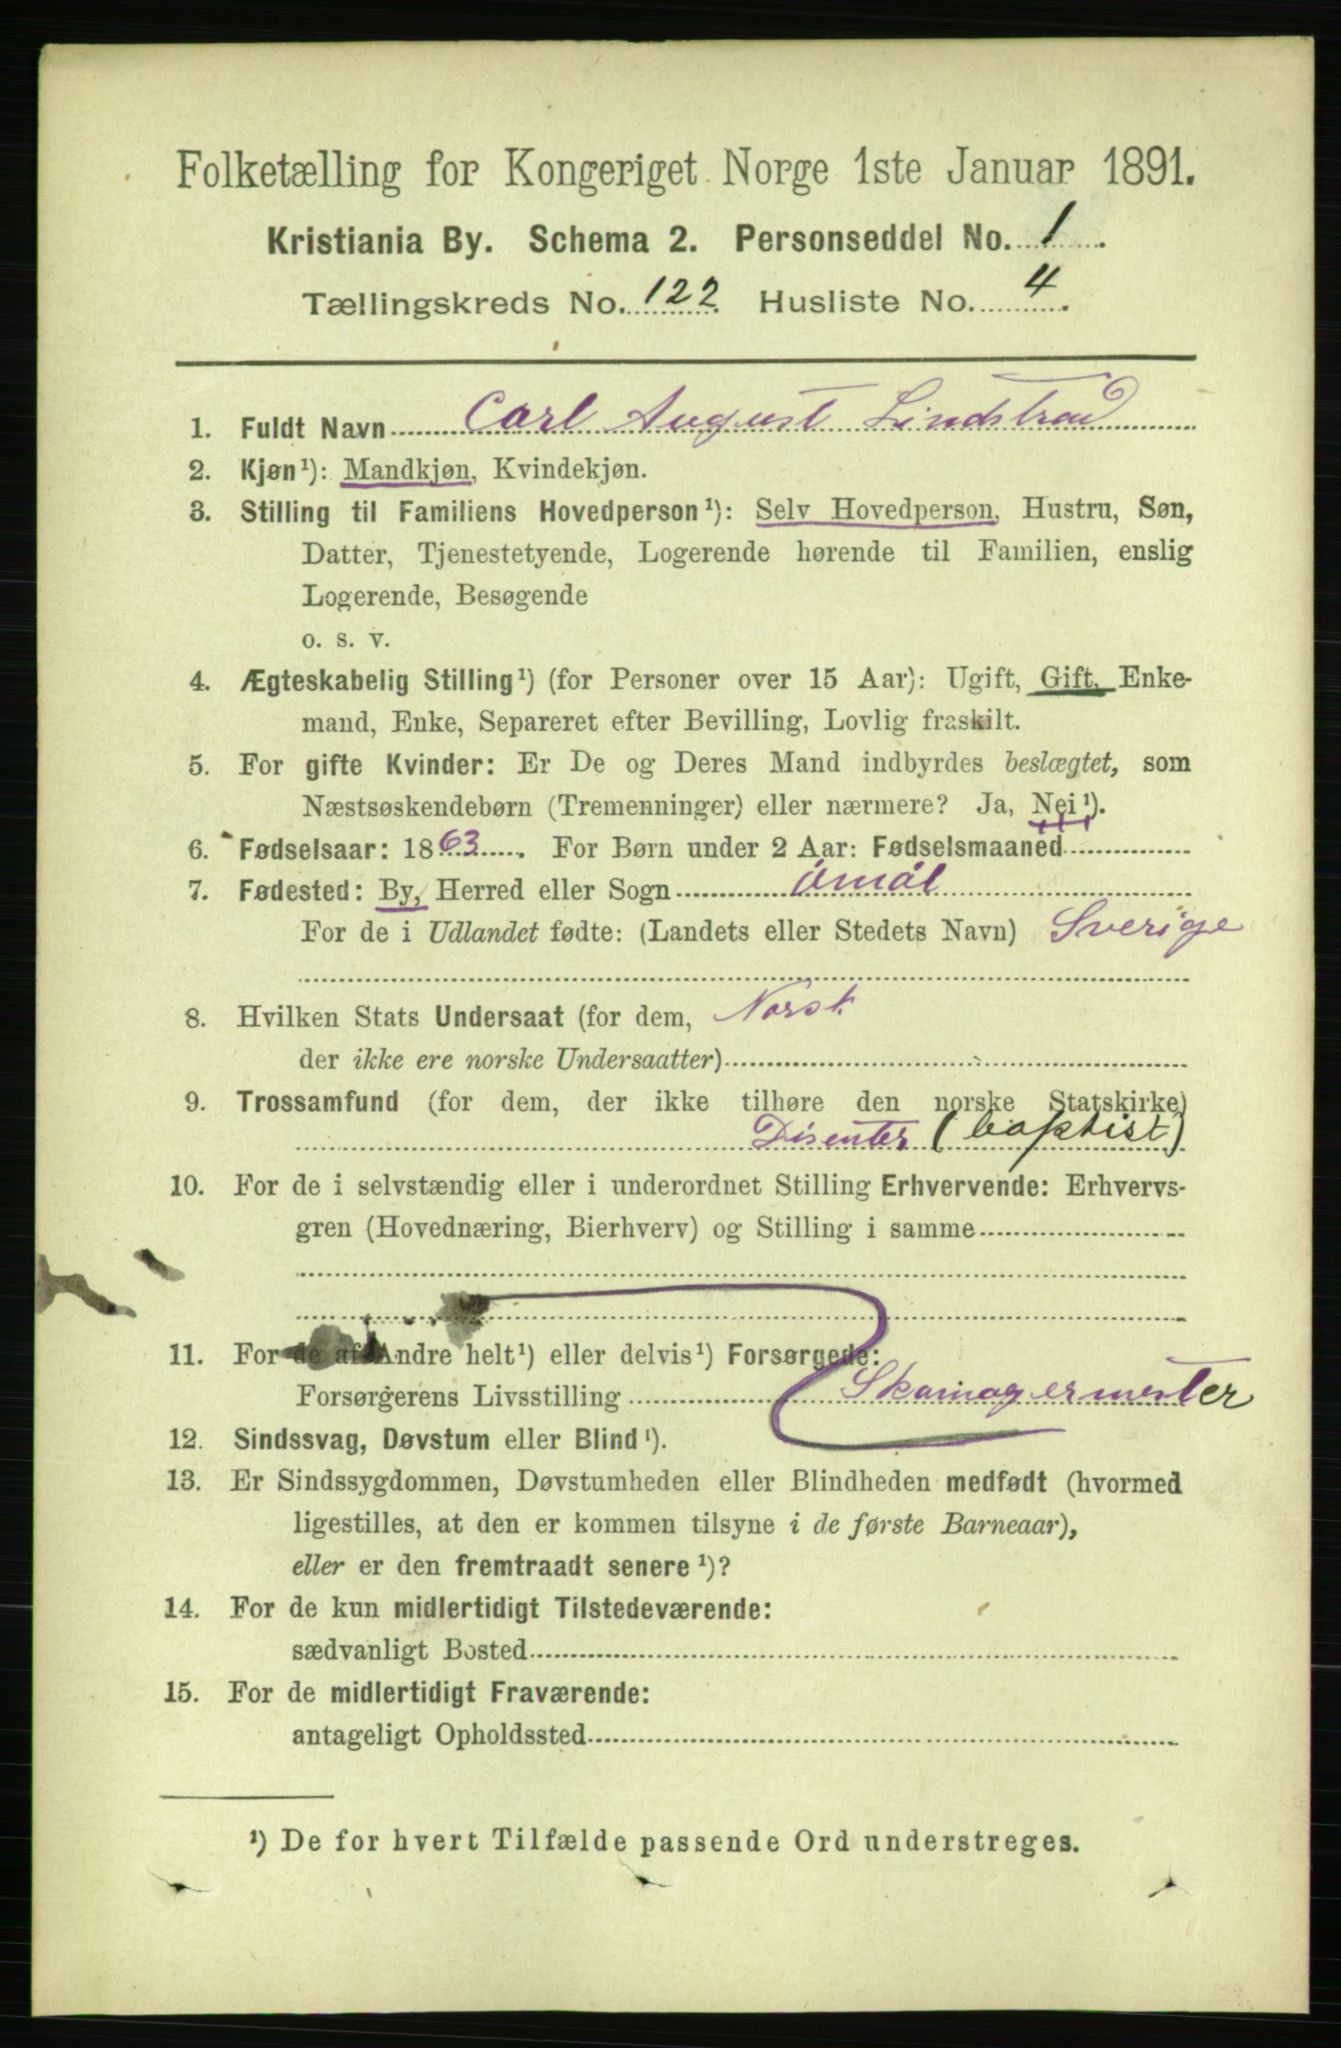 Folketælling for Kongeriget Norge 1ste Januar 1891.
Kristiania By. Schema 2. Personseddel No. 1.
Tællingskreds No. 122 Husliste No. 4.
1. Fuldt Navn Carl August Lindstrød
2. Kjøn¹): Mandkjøn, Kvindekjøn.
3. Stilling til Familiens Hovedperson¹): Selv Hovedperson, Hustru, Søn,
Datter, Tjenestetyende, Logerende hørende til Familien, enslig
Logerende, Besøgende
o. s. v.
4. Ægteskabelig Stilling¹) (for Personer over 15 Aar): Ugift, Gift, Enke-
mand, Enke, Separeret efter Bevilling, Lovlig fraskilt.
5. For gifte Kvinder: Er De og Deres Mand indbyrdes beslægtet, som
Næstsøskendebørn (Tremenninger) eller nærmere? Ja, Nei¹).
6. Fødselsaar: 1863. For Børn under 2 Aar: Fødselsmaaned
7. Fødested: By, Herred eller Sogn Åmål
For de i Udlandet fødte: (Landets eller Stedets Navn) Sverige
8. Hvilken Stats Undersaat (for dem, Norsk
der ikke ere norske Undersaatter)
9. Trossamfund (for dem, der ikke tilhøre den norske Statskirke)
Disenter (baptist)
10. For de i selvstændig eller i underordnet Stilling Erhvervende: Erhvervs-
gren (Hovednæring, Bierhverv) og Stilling i samme
11. For de af Andre helt¹) eller delvis¹) Forsørgede:
Forsørgerens Livsstilling Skomagermester
12. Sindssvag, Døvstum eller Blind¹).
13. Er Sindssygdommen, Døvstumheden eller Blindheden medfødt (hvormed
ligestilles, at den er kommen tilsyne i de første Barneaar),
eller er den fremtraadt senere¹)?
14. For de kun midlertidigt Tilstedeværende:
sædvanligt Bosted
15. For de midlertidigt Fraværende:
antageligt Opholdssted
¹) De for hvert Tilfælde passende Ord understreges.